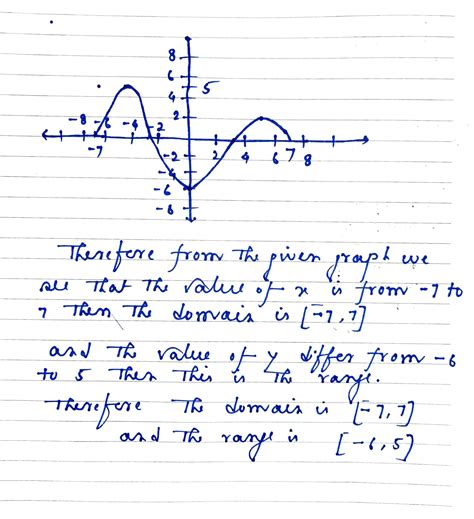 8
6
5
4
2
-8 -6 -4 -2
-7
2 4 6 7 8
-2
-4
-6
-8
Therefore from the given graph we
see that the value of x is from -7 to
7 then the domain is [-7,7]
and the value of y differ from -6
to 5 then this is the range.
Therefore the domain is [-7,7]
and the range is [-6,5]